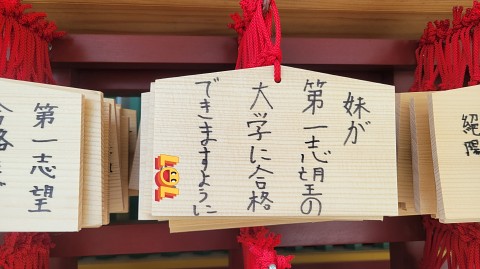 妹が
第一志望の
大学に合格
できますように
LOL
第一志望